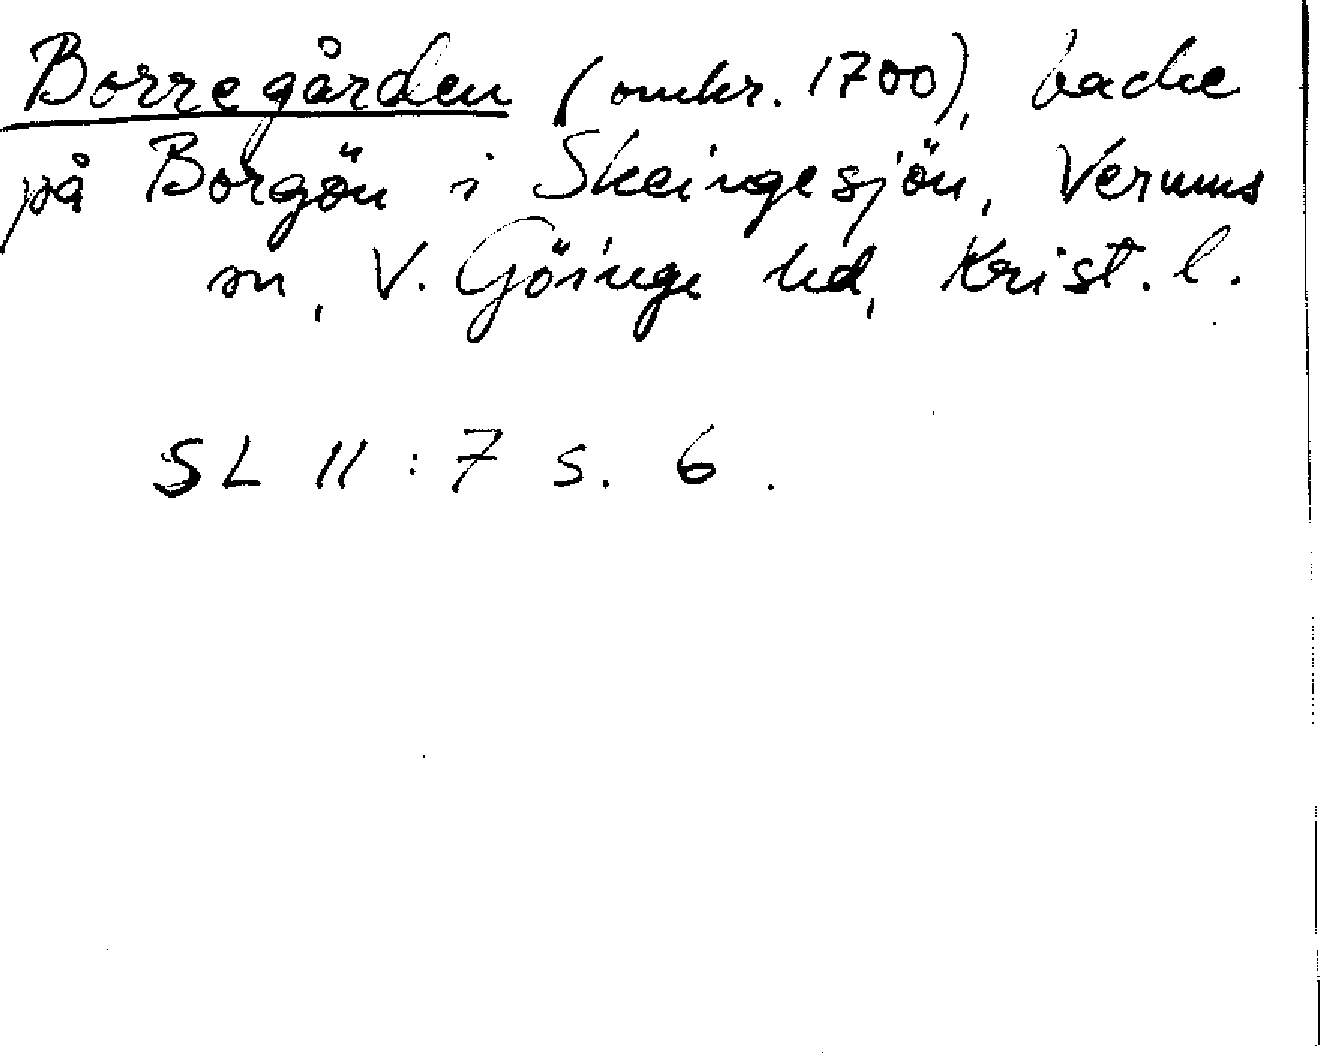 Borregården (omkr. 1700), backe
på Borgön i Skeingesjön, Verums
sn, V. Göinge hd, Krist. l.
SL 11:7 s. 6.